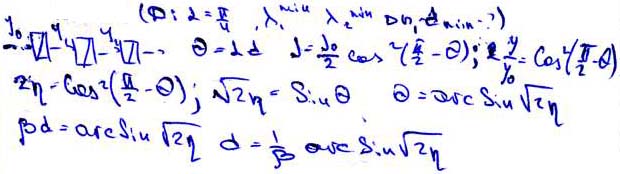 (D: α = π/4, λ₁^min λ₂^min Dn, d min - ?)
J₀ J J θ = αd J = J₀/2 cos²(π/2 - θ); 2 J/J₀ = Cos²(π/2 - θ)
2η = Cos²(π/2 - θ); √2η = Sin θ θ = arc Sin √2η
βd = arc Sin √2η d = 1/β arc Sin √2η